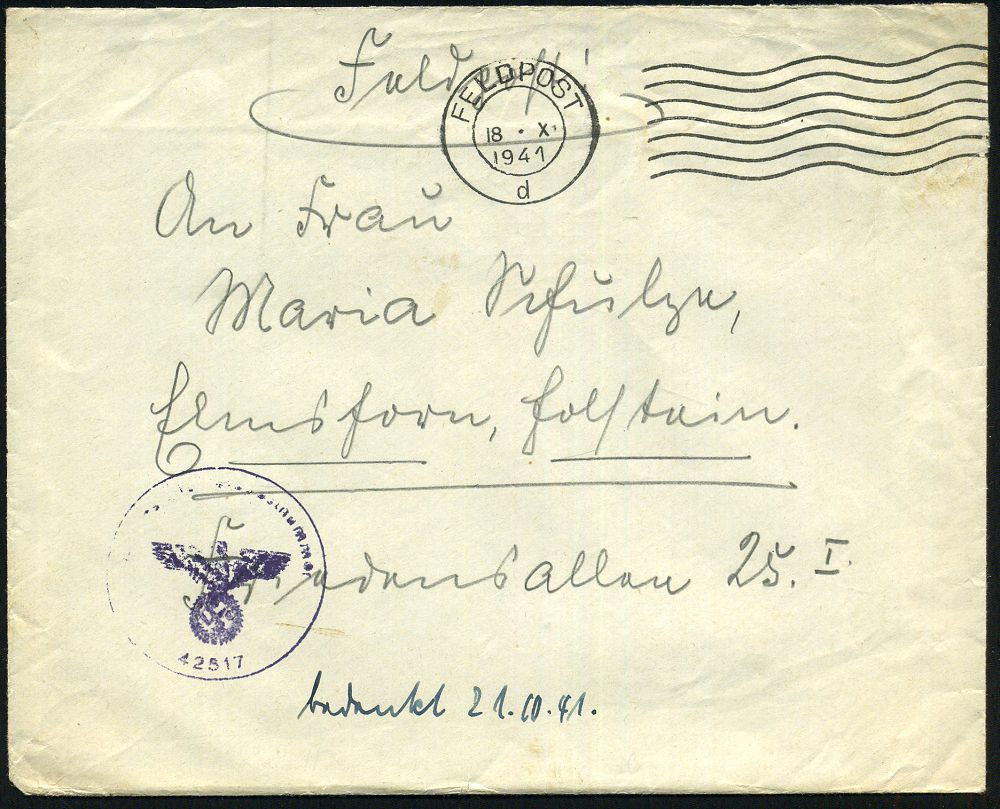 Feldpost
FELDPOST
18 · X.
1941
d
An Frau
Maria Schulze,
Elmshorn, Holstein.
Friedensallee 25. I.
42517
bedankt 21.10.41.